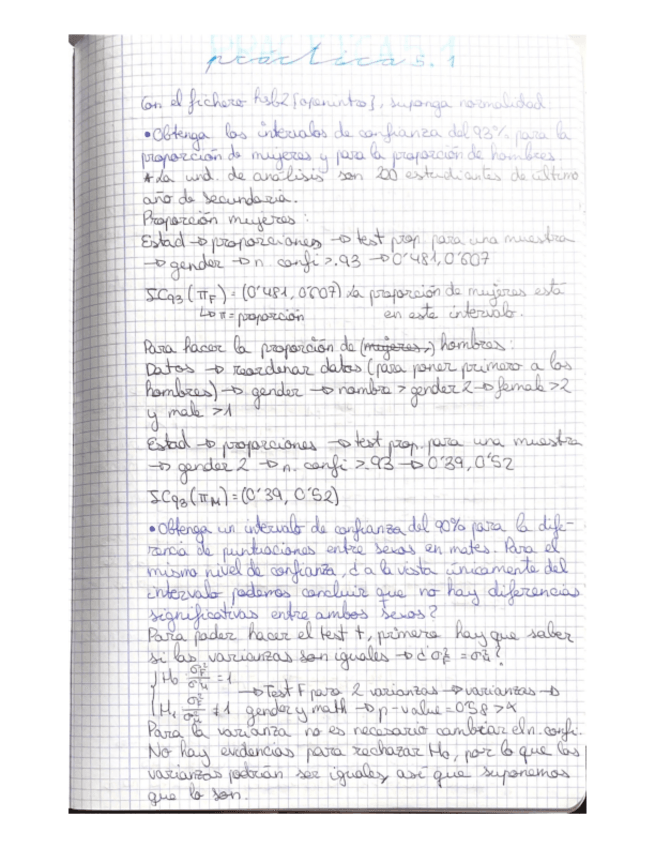 práctica 5.1
Con el fichero hsb2 [openintro], suponga normalidad
• Obtenga los intervalos de confianza del 93% para la
proporción de mujeres y para la proporción de hombres.
* La und. de análisis son 200 estudiantes de último
año de secundaria.
Proporción mujeres:
Estad → proporciones → test prop. para una muestra
→ gender → n. confi > .93 → 0'481, 0'607
IC93 (π_F) = (0'481, 0'607) La proporción de mujeres está
↳ π = proporción en este intervalo.
Para hacer la proporción de (mujeres,) hombres:
Datos → reordenar datos (para poner primero a los
hombres) → gender → nombre > gender 2 → female > 2
y male > 1
Estad → proporciones → test prop. para una muestra
→ gender 2 → n. confi > .93 → 0'39, 0'52
IC93 (π_M) = (0'39, 0'52)
• Obtenga un intervalo de confianza del 90% para la dife-
rencia de puntuaciones entre sexos en mates. Para el
mismo nivel de confianza, ¿a la vista únicamente del
intervalo podemos concluir que no hay diferencias
significativas entre ambos sexos?
Para poder hacer el test t, primero hay que saber
si las varianzas son iguales → ¿σ²_F = σ²_M?
H0 σ²_F/σ²_M = 1
→ Test F para 2 varianzas → varianzas →
H1 σ²_F/σ²_M ≠ 1 gender y math → p-value = 0'58 > α
Para la varianza no es necesario cambiar el n. confi.
No hay evidencias para rechazar H0, por lo que las
varianzas podrían ser iguales, así que suponemos
que lo son.